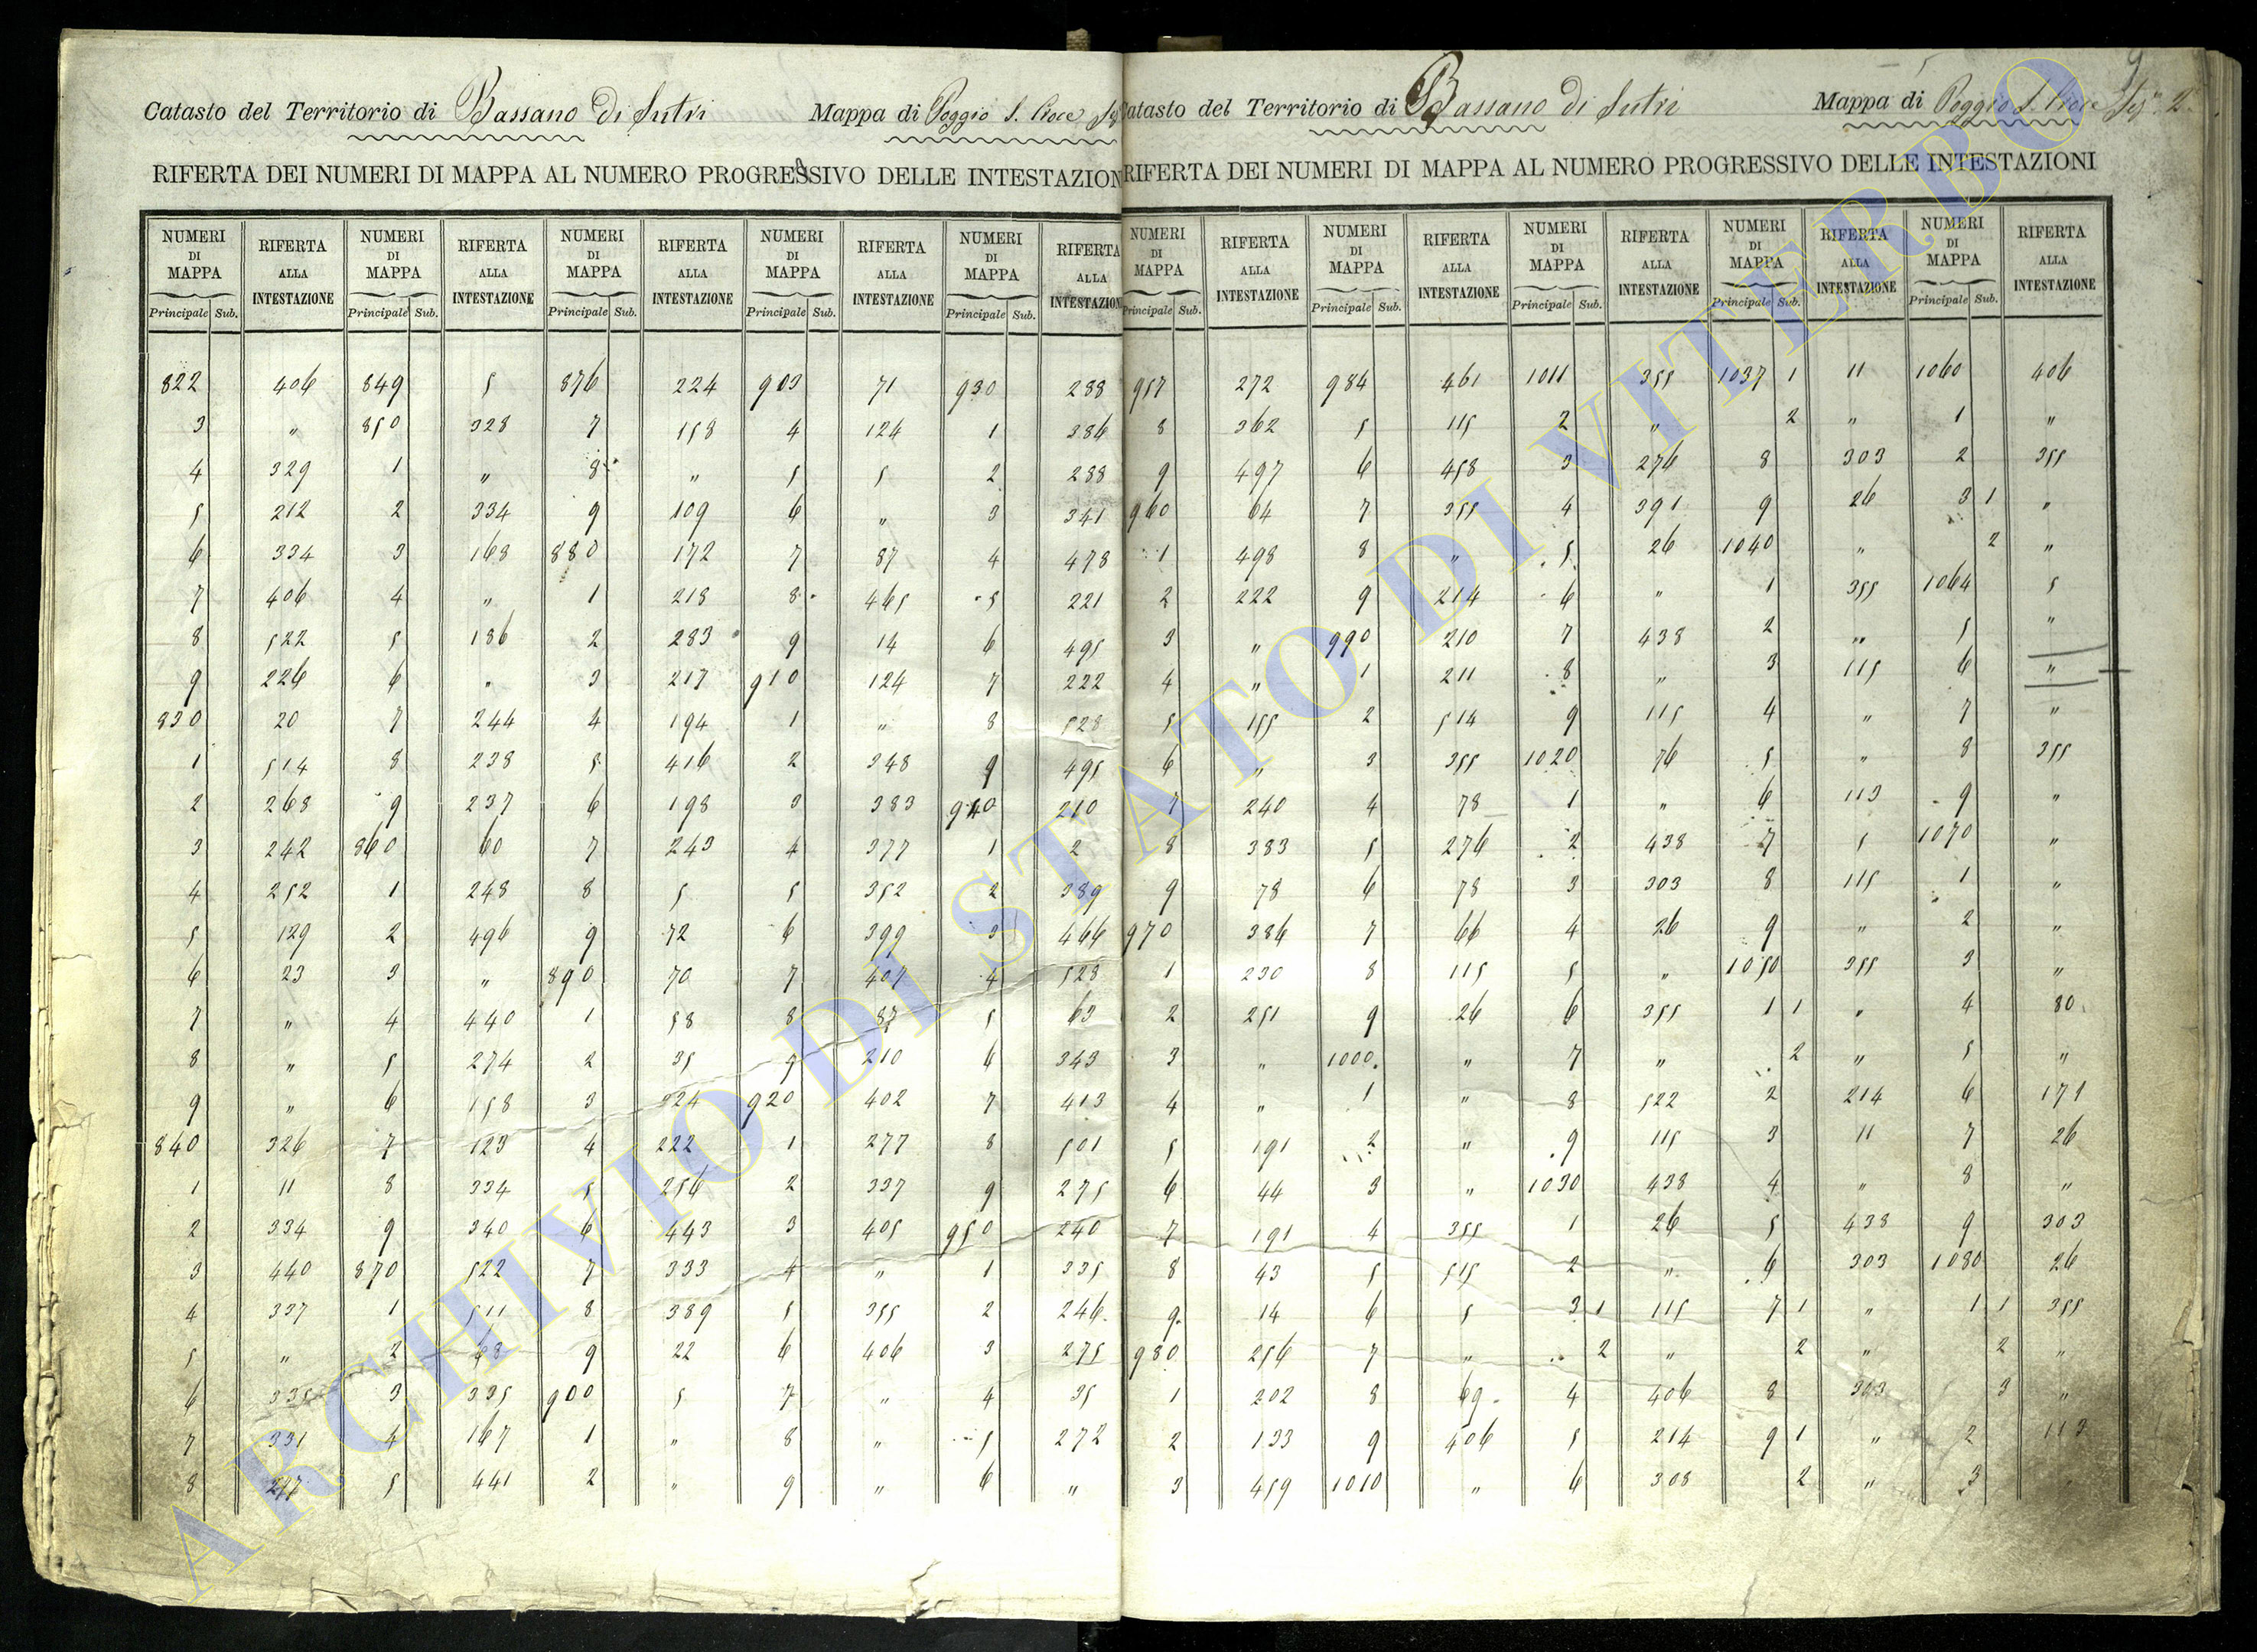 9
Catasto del Territorio di Bassano di Sutri Mappa di Poggio S.
RIFERTA DEI NUMERI DI MAPPA AL NUMERO PROGRESSIVO DELLE INTESTAZION
NUMERI DI MAPPA RIFERTA ALLA INTESTAZIONE NUMERI DI MAPPA RIFERTA ALLA INTESTAZIONE NUMERI DI MAPPA RIFERTA ALLA INTESTAZIONE NUMERI DI MAPPA RIFERTA ALLA INTESTAZIONE NUMERI DI MAPPA RIFERTA ALLA INTESTAZION
Principale Sub. Principale Sub. Principale Sub. Principale Sub. Principale Sub.
822 406 849 5 876 224 903 71 930 288
3 " 850 328 7 158 4 124 1 386
4 329 1 " 8 " 5 5 2 288
5 212 2 334 9 109 6 " 3 341
6 334 3 168 880 172 7 87 4 478
7 406 4 " 1 218 8 465 5 221
8 522 5 186 2 283 9 14 6 495
9 226 6 " 3 217 910 124 7 222
830 20 7 244 4 194 1 " 8 528
1 514 8 238 5 416 2 348 9 495
2 268 9 237 6 198 3 383 940 210
3 242 860 60 7 243 4 377 1 2
4 252 1 248 8 5 5 352 2 389
5 129 2 496 9 72 6 399 3 466
6 23 3 " 890 70 7 407 4 528
7 " 4 440 1 58 8 87 5 63
8 " 5 274 2 35 9 210 6 343
9 " 6 158 3 324 920 402 7 413
840 326 7 123 4 222 1 277 8 501
1 11 8 334 5 256 2 337 9 275
2 334 9 340 6 443 3 405 950 240
3 440 870 522 7 333 4 " 1 335
4 337 1 511 8 389 5 355 2 246
5 " 2 68 9 22 6 406 3 275
6 335 3 335 900 5 7 " 4 35
7 331 4 167 1 " 8 " 5 272
8 5 441 2 " 9 " 6 "
Catasto del Territorio di Bassano di Sutri Mappa di Poggio S. 2
RIFERTA DEI NUMERI DI MAPPA AL NUMERO PROGRESSIVO DELLE INTESTAZIONI
NUMERI DI MAPPA RIFERTA ALLA INTESTAZIONE NUMERI DI MAPPA RIFERTA ALLA INTESTAZIONE NUMERI DI MAPPA RIFERTA ALLA INTESTAZIONE NUMERI DI MAPPA RIFERTA ALLA INTESTAZIONE NUMERI DI MAPPA RIFERTA ALLA INTESTAZIONE
Principale Sub. Principale Sub. Principale Sub. Principale Sub. Principale Sub.
957 272 984 461 1011 355 1037 1 11 1060 406
8 362 5 115 2 " 2 " 1 "
9 497 6 458 3 276 8 303 2 355
960 64 7 355 4 391 9 26 3 1 "
1 498 8 " 5 26 1040 " 2 "
2 222 9 214 6 " 1 355 1064 5
3 " 990 210 7 438 2 " 5 "
4 " 1 211 8 " 3 115 6 "
5 155 2 514 9 115 4 " 7 "
6 " 3 355 1020 76 5 " 8 355
7 240 4 78 1 " 6 113 9 "
8 383 5 276 2 438 7 5 1070 "
9 78 6 78 3 303 8 115 1 "
970 386 7 66 4 26 9 " 2 "
1 230 8 115 5 " 1050 355 3 "
2 251 9 26 6 355 1 1 " 4 80
3 " 1000 " 7 " 2 " 5 "
4 " 1 " 8 522 2 214 6 171
5 191 2 " 9 115 3 11 7 26
6 44 3 " 1030 438 4 " 8 "
7 191 4 355 1 26 5 438 9 303
8 43 5 515 2 " 6 303 1080 26
9 14 6 5 3 1 115 7 1 " 1 1 355
980 256 7 " 2 " 2 " 2 "
1 202 8 69 4 406 8 303 3 "
2 133 9 406 5 214 9 1 " 2 113
3 459 1010 " 6 308 2 " 3 "
ARCHIVIO DI STATO DI VITERBO